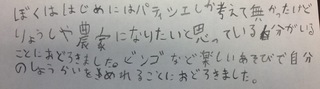 ぼくははじめにはパティシエしか考えて無かったけど
りょうしや農家になりたいと思っている自分がいる
ことにおどろきました。ビンゴなど楽しいあそびで自分
のしょうらいを決めれることにおどろきました。